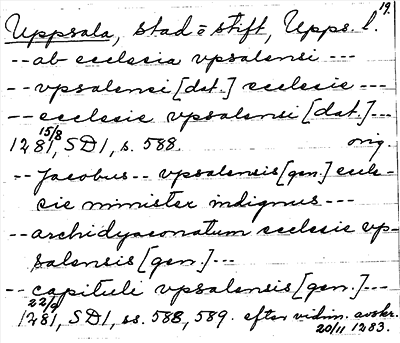 Uppsala, stad o stift, Upps. l. 19.
-- ab ecclesia vpsalensi ---
-- vpsalensi [dat.] ecclesie ---
-- ecclesie vpsalensi [dat.]---
1281 15/8, SD1, s. 588. orig.
-- Jacobus -- vpsalensis [gen.] eccle-
sie minister indignus ---
-- archidyaconatum ecclesie vp-
salensis [gen.]---
-- capituli vpsalensis [gen.]---
1281 22/9, SD1, ss. 588, 589. efter vidim. avskr.
20/11 1283.